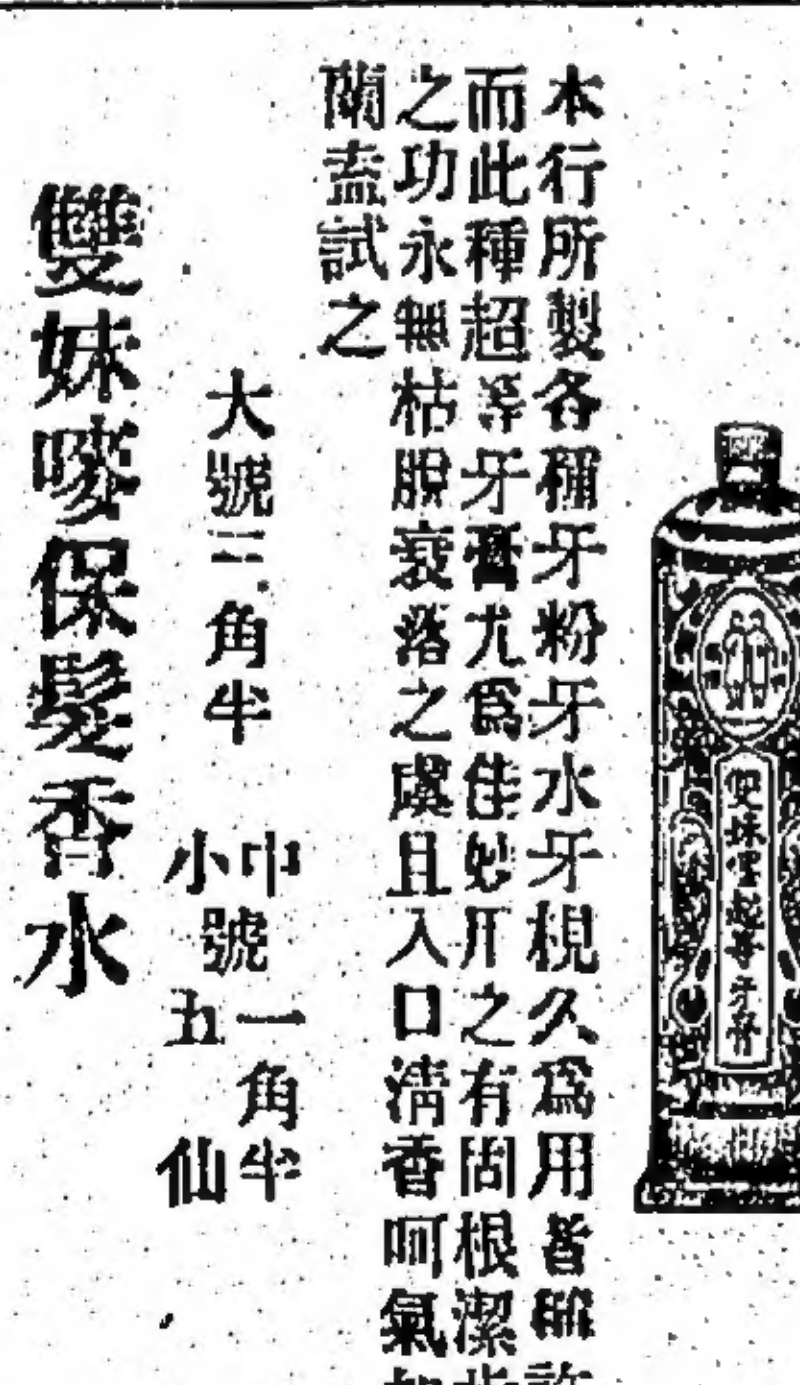 本行所製各種牙粉牙水牙梘久爲用者稱許
而此種超等牙膏尤爲佳妙用之有固根潔齒
之功永無枯脫衰落之虞且入口清香呵氣如
蘭盍試之
大號三角半
中號一角半
小號五仙
雙妹嘜保髮香水